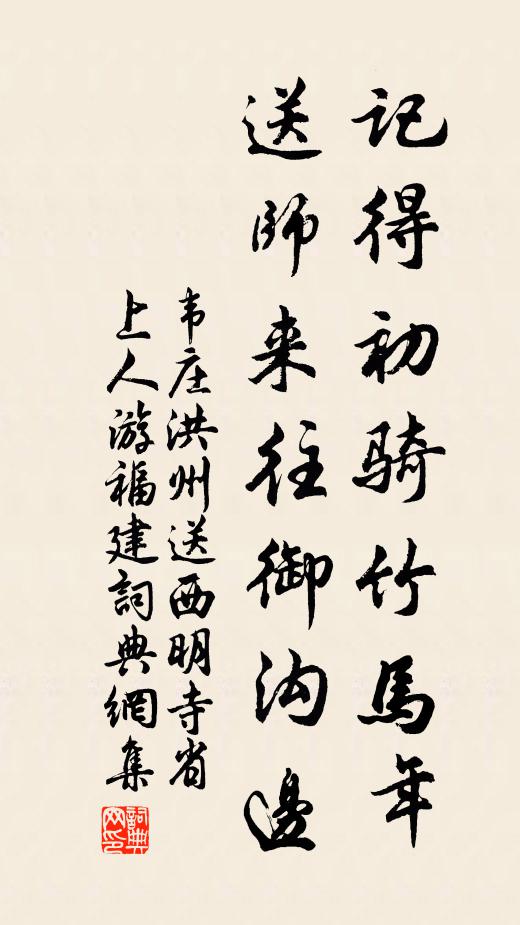 记得初骑竹馬年
送師来往御沟邊
韦庄洪州送西明寺省
上人游福建詞典網集
詞典网印